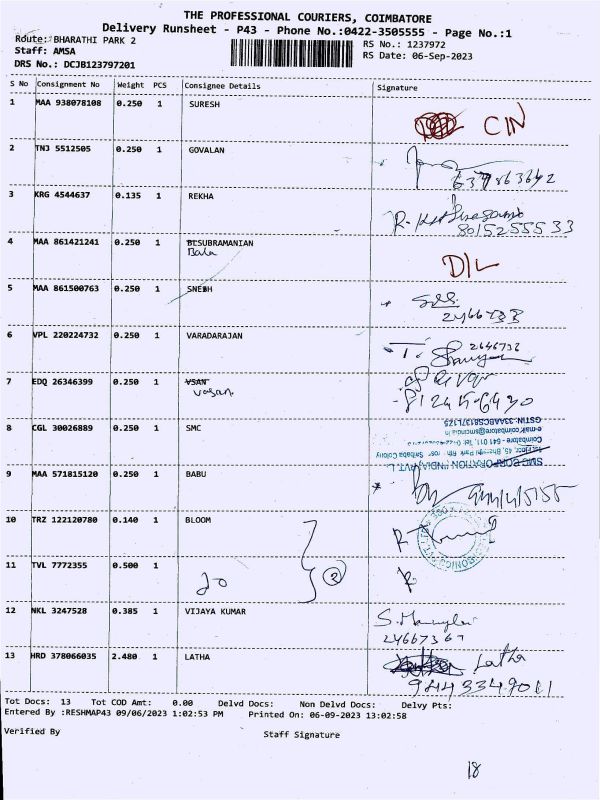 THE PROFESSIONAL COURIERS, COIMBATORE
Delivery Runsheet - P43 - Phone No.:0422-3505555 - Page No.:1
Route: BHARATHI PARK 2
RS No.: 1237972
Staff: AMSA
RS Date: 06-Sep-2023
DRS No.: DCJB123797201
S No Consignment No Weight PCS Consignee Details Signature
1 MAA 938078108 0.250 1 SURESH
CIN
2 TNJ 5512505 0.250 1 GOVALAN
3 KRG 4544637 0.135 1 REKHA
8015255533
4 MAA 861421241 0.250 1 SUBRAMANIAN
Bala
D/L
5 MAA 861500763 0.250 1 SNEBH
6 VPL 220224732 0.250 1 VARADARAJAN
2646732
7 EDQ 26346399 0.250 1 VSAN
vasan
8 CGL 30026889 0.250 1 SMC
GSTIN: 33AABCS8137L1Z5
e-mail: coimbatore@smcindia.in
Coimbatore - 641 011. Tel:
Bharathi Park Saibaba Colony
SMC CORPORATION (INDIA) PVT. L
9 MAA 571815120 0.250 1 BABU
10 TRZ 122120780 0.140 1 BLOOM
R
2
11 TVL 7772355 0.500 1
12 NKL 3247528 0.385 1 VIJAYA KUMAR
13 HRD 378066035 2.480 1 LATHA
Latha
9443349011
Tot Docs: 13 Tot COD Amt: 0.00 Delvd Docs: Non Delvd Docs: Delvy Pts:
Entered By :RESHMAP43 09/06/2023 1:02:53 PM Printed On: 06-09-2023 13:02:58
Verified By Staff Signature
18